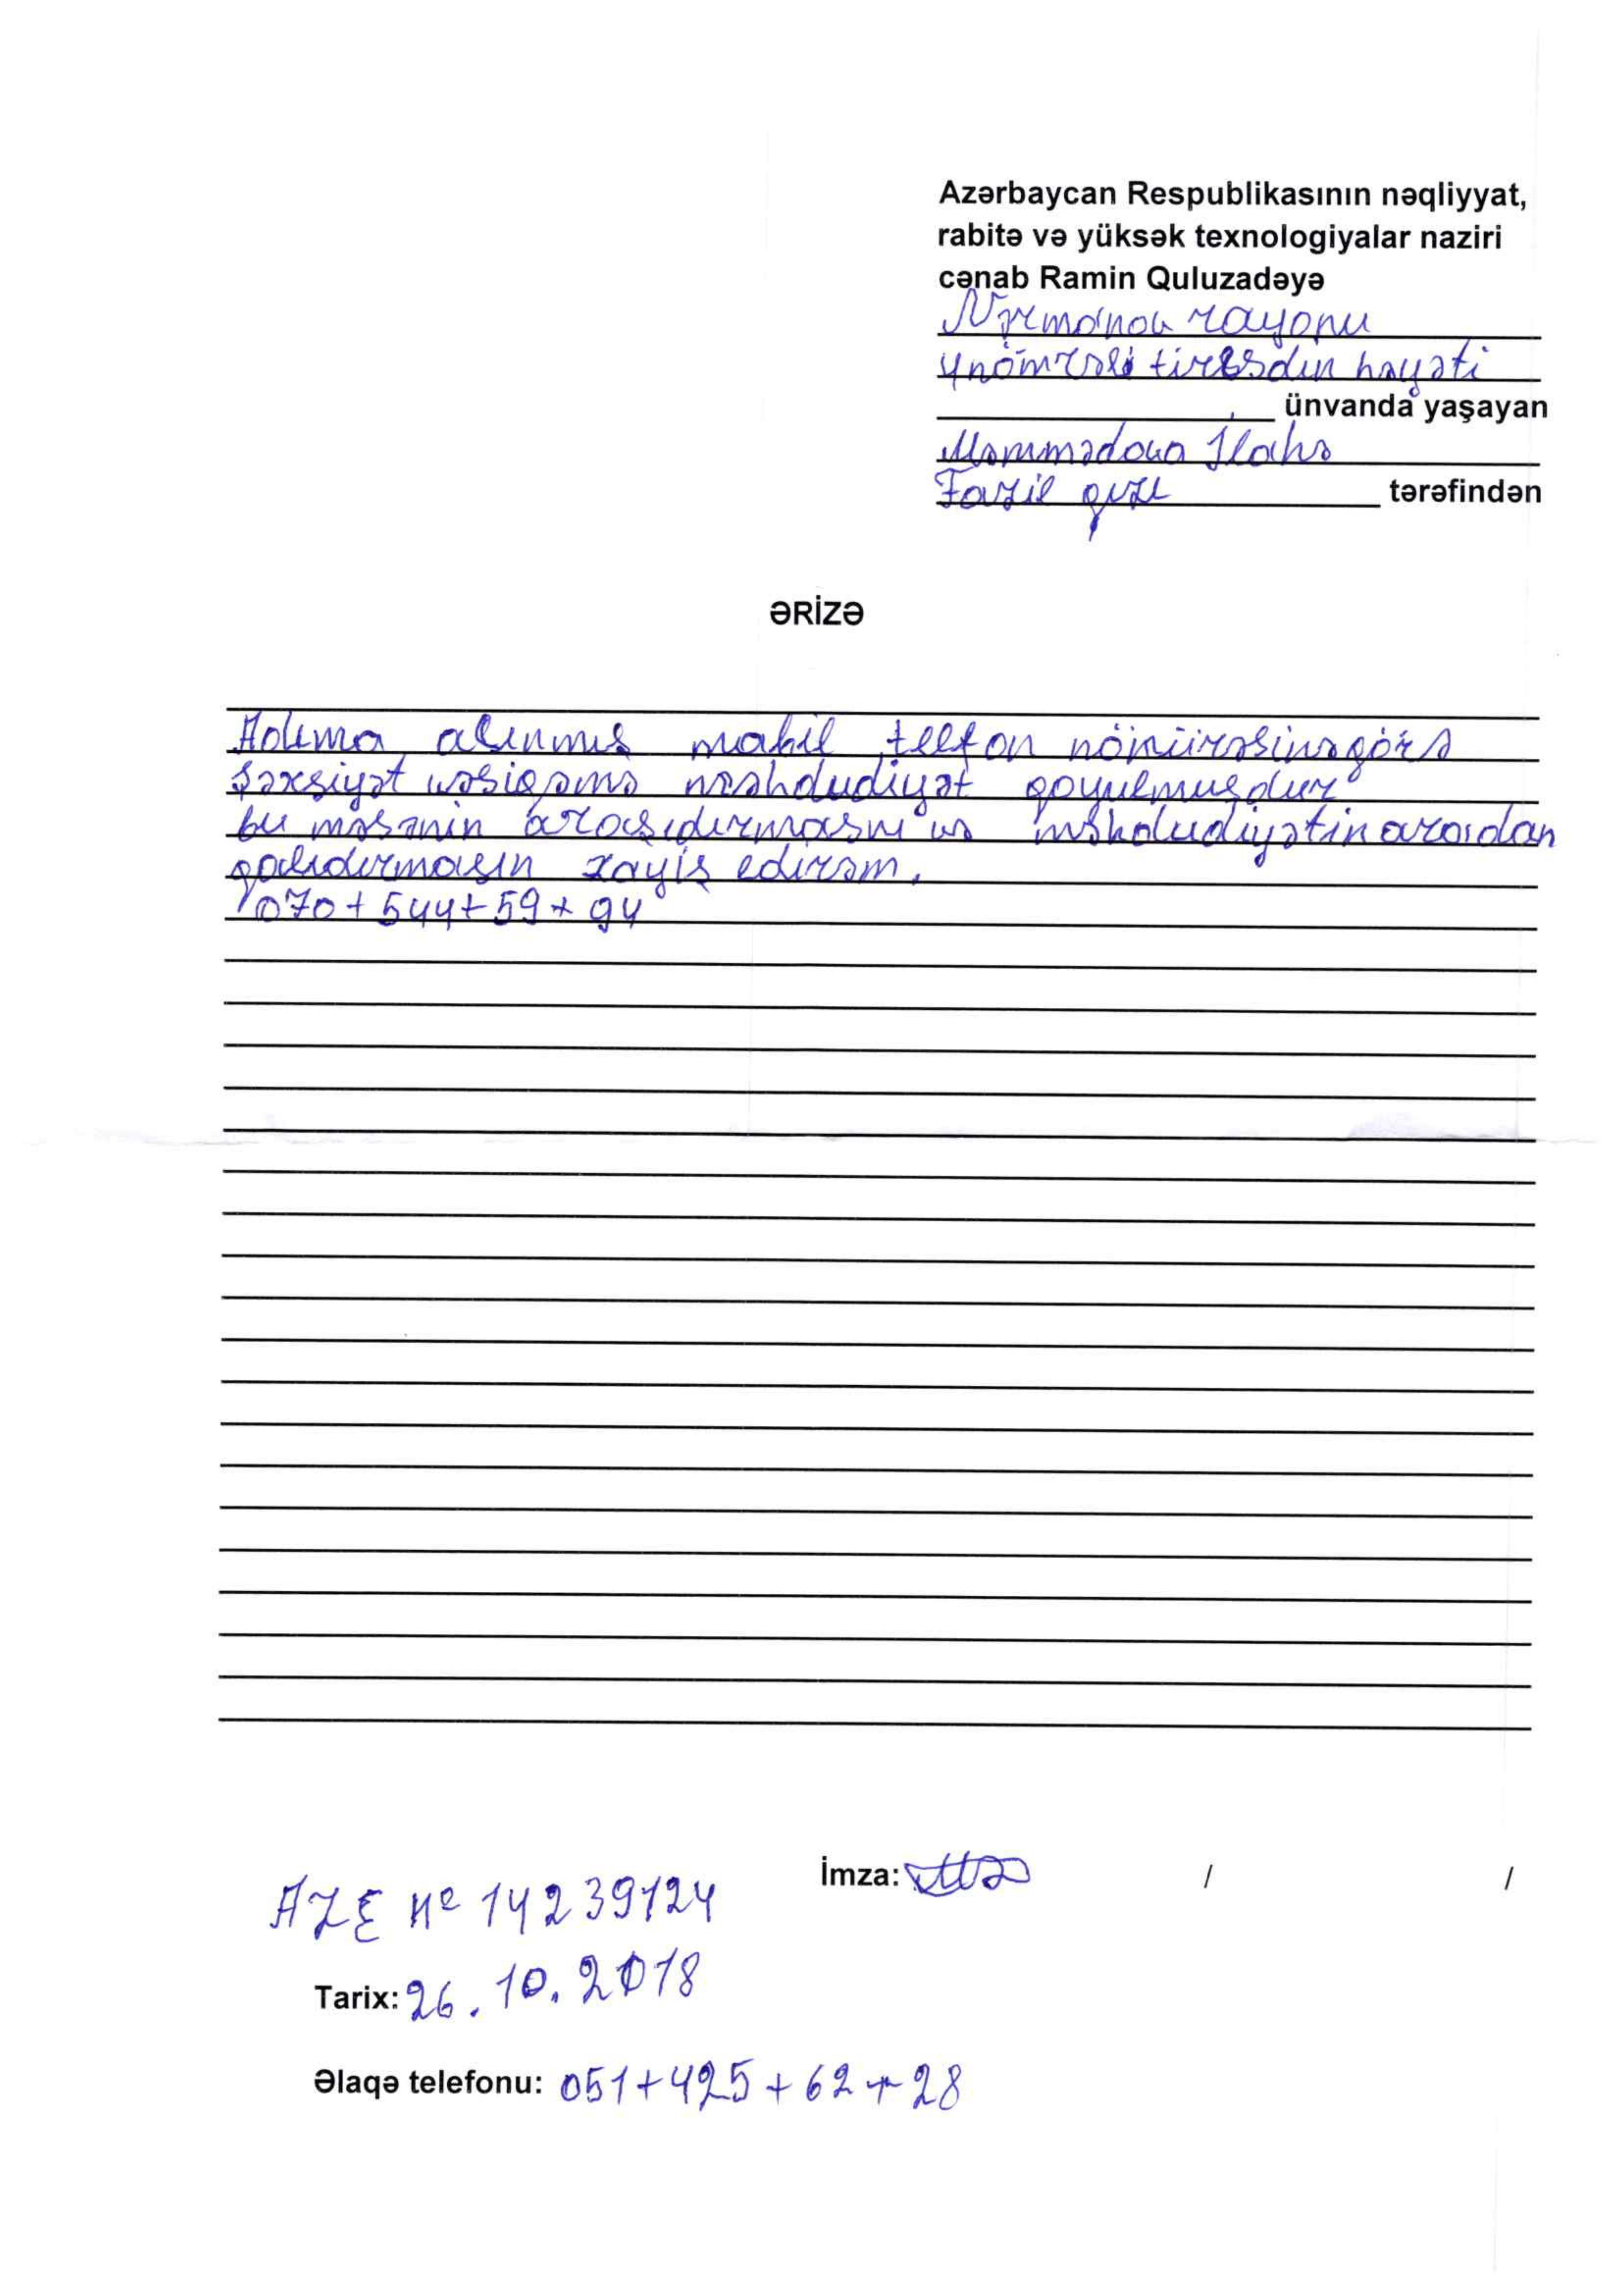 Azərbaycan Respublikasının nəqliyyat,
rabitə və yüksək texnologiyalar naziri
cənab Ramin Quluzadəyə
Nərmanov rayonu
4 nömrəli həyəti
ünvanda yaşayan
Məmmədova İlahə
Fazil qızı tərəfindən
ƏRİZƏ
Adıma alınmış mabil telfon nömürəsinə görə
Şəxsiyət vəsiqəmə məhdudiyət qoyulmuşdur
bu məsənin araşıdırmasını və məhdudiyətin aradan
qalıdırmasın xayiş edirəm.
070+544+59+94
İmza: / /
AZE № 14239124
Tarix: 26.10.2018
Əlaqə telefonu: 051+425+62+28